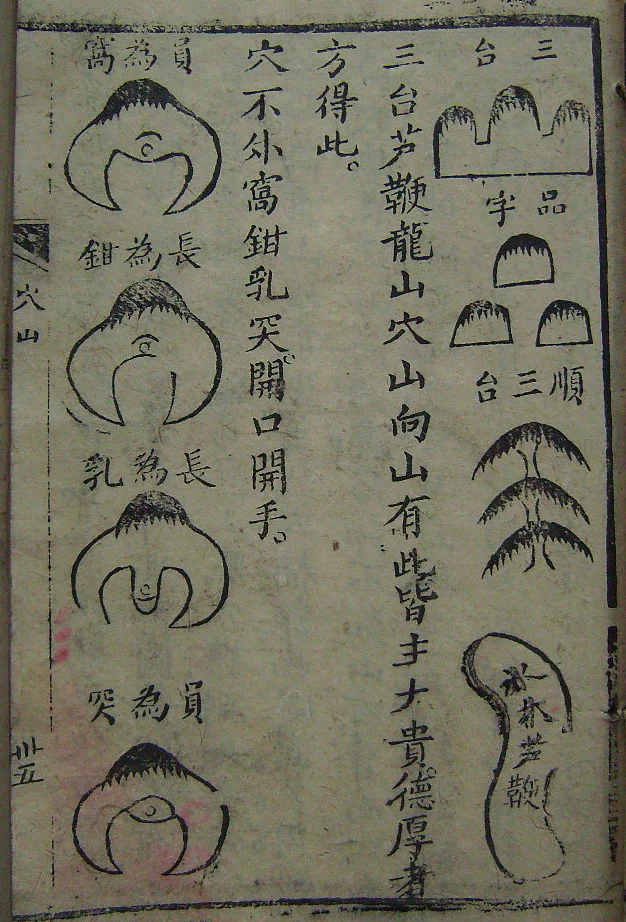 三台
品字
順三台
水木芦鞭
三台芦鞭龍山穴山向山有此皆主大貴。德厚者
方得此。
穴不外窩鉗乳突。開口開手。
員為窩
長為鉗
長為乳
員為突
穴山
卅五